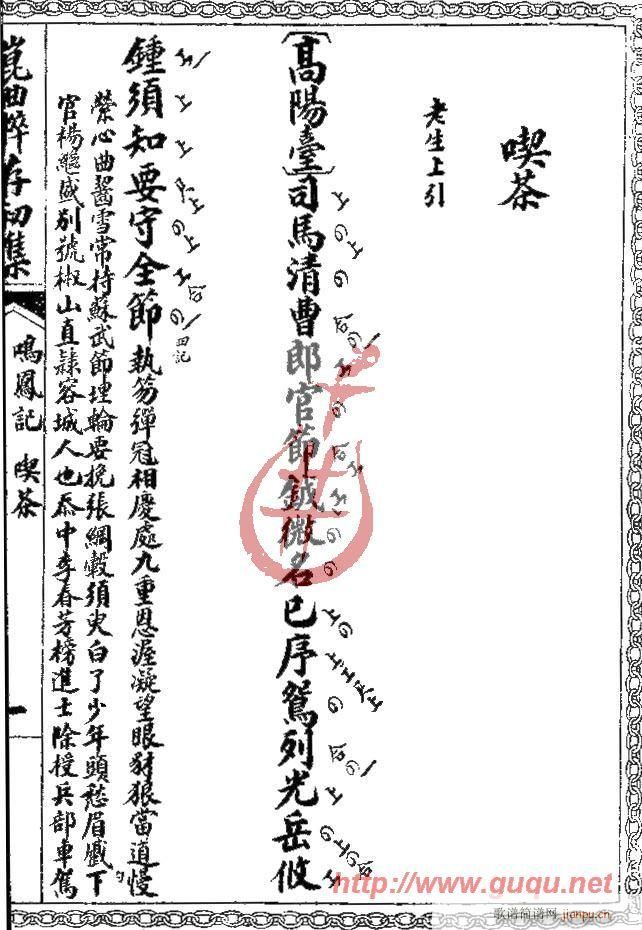 喫茶
老生上引
〔高陽臺〕司馬清曹郎官節鉞微名已序鴛列光岳攸
鍾須知要守全節執笏彈冠相慶處九重恩渥凝望眼豺狼當道慢
縈心曲齧雪常持蘇武節埋輪要挽張綱轂須臾白了少年頭愁眉戚下
官楊繼盛別號椒山直隸容城人也忝中李春芳榜進士除授兵部車駕
崑曲粹存初集
鳴鳳記 喫茶
一
http://www.guqu.net
歌谱简谱网 jianpu.cn